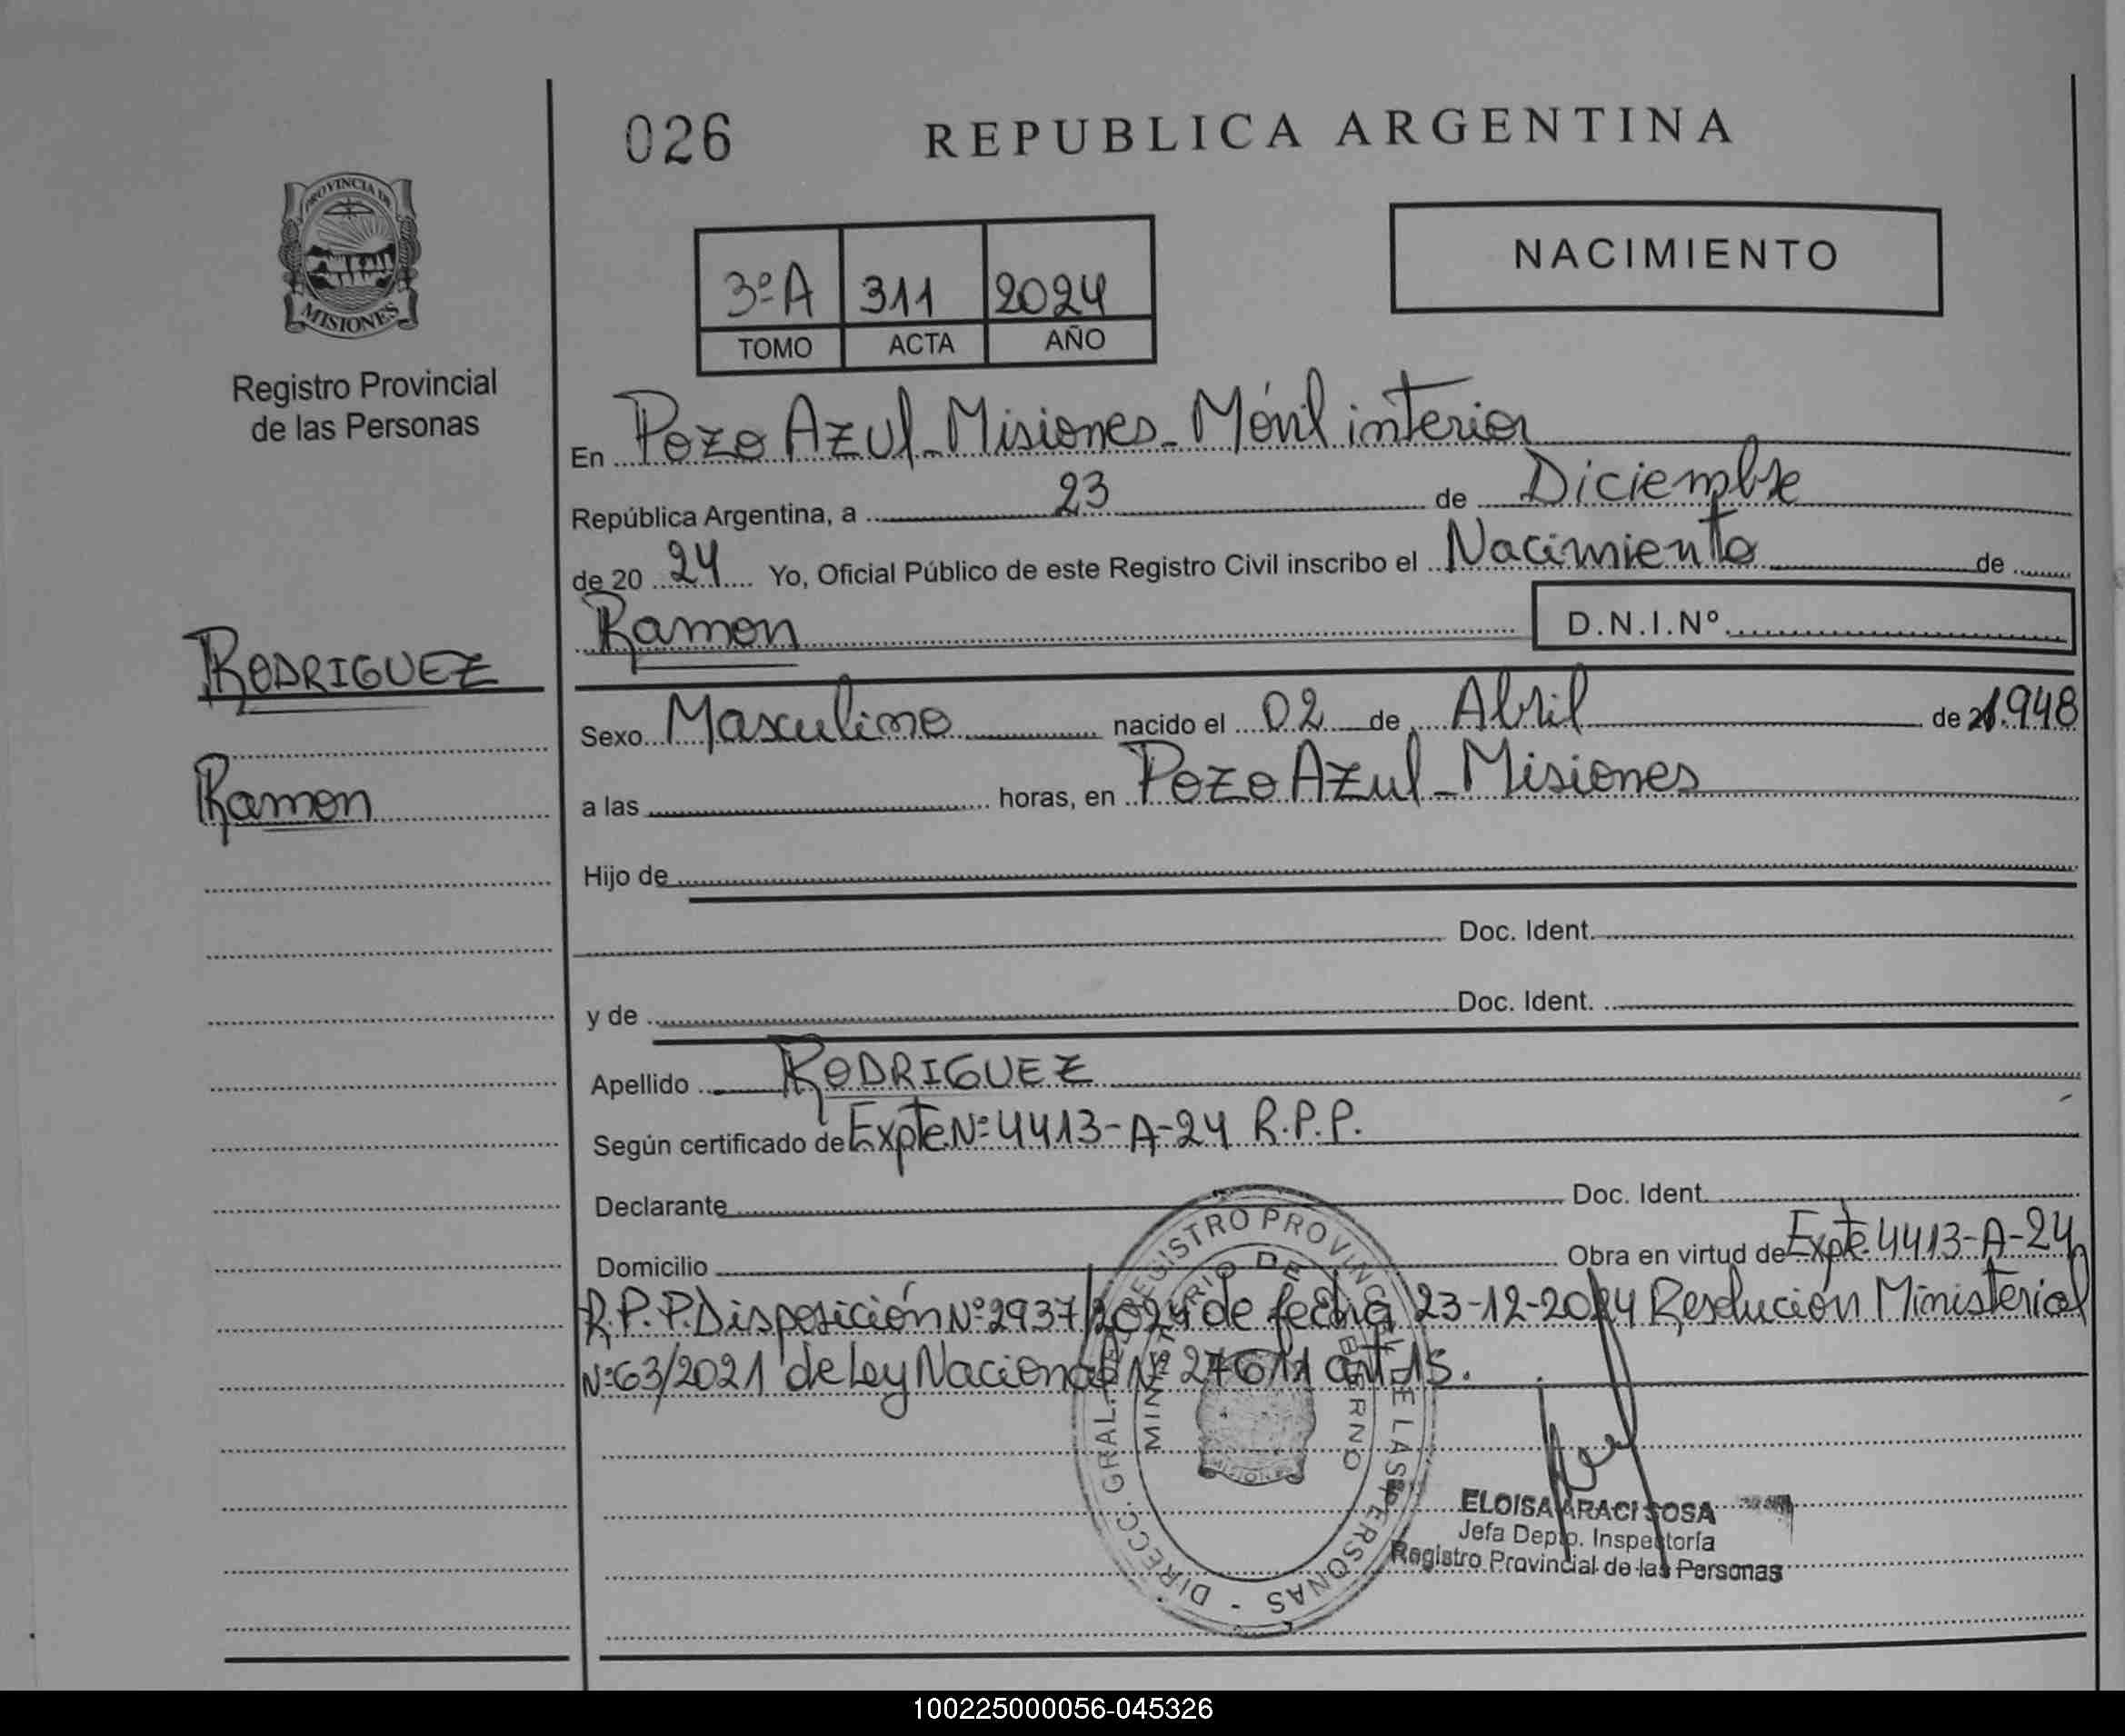 026 REPUBLICA ARGENTINA
PROVINCIA DE
MISIONES
NACIMIENTO
3ºA 311 2024
TOMO ACTA AÑO
Registro Provincial
de las Personas
En Pozo Azul - Misiones - Móvil interior
República Argentina, a 23 de Diciembre
de 20 24 Yo, Oficial Público de este Registro Civil inscribo el Nacimiento de
Ramon D.N.I.Nº
RODRIGUEZ
Sexo Masculino nacido el 02 de Abril de 1.948
Ramon
a las horas, en Pozo Azul - Misiones
Hijo de
Doc. Ident.
y de Doc. Ident.
Apellido RODRIGUEZ
Según certificado de Expte Nº 4413-A-24 R.P.P.
Declarante Doc. Ident.
Domicilio Obra en virtud de Expte. 4413-A-24
R.P.P. Disposición Nº 2937/2024 de fecha 23-12-2024 Resolución Ministerial
Nº 63/2021 de Ley Nacional Nº 27611 art 15.
DIRECC. GRAL. REGISTRO PROVINCIAL DE LAS PERSONAS -
MINISTERIO DE GOBIERNO
MISIONES
ELOISA ARACI SOSA
Jefa Depto. Inspectoría
Registro Provincial de las Personas
100225000056-045326